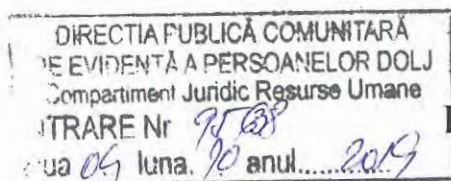 DIRECTIA PUBLICĂ COMUNITARĂ
DE EVIDENȚĂ A PERSOANELOR DOLJ
Compartiment Juridic Resurse Umane
INTRARE Nr
Ziua 09 luna. 10 anul......2019